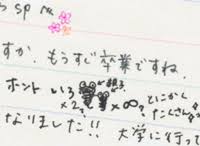 sp
すか。もうすぐ卒業ですね。
ホント いろ
×2 ×∞。とにかく
たくさん
なりました!! 大学に行って